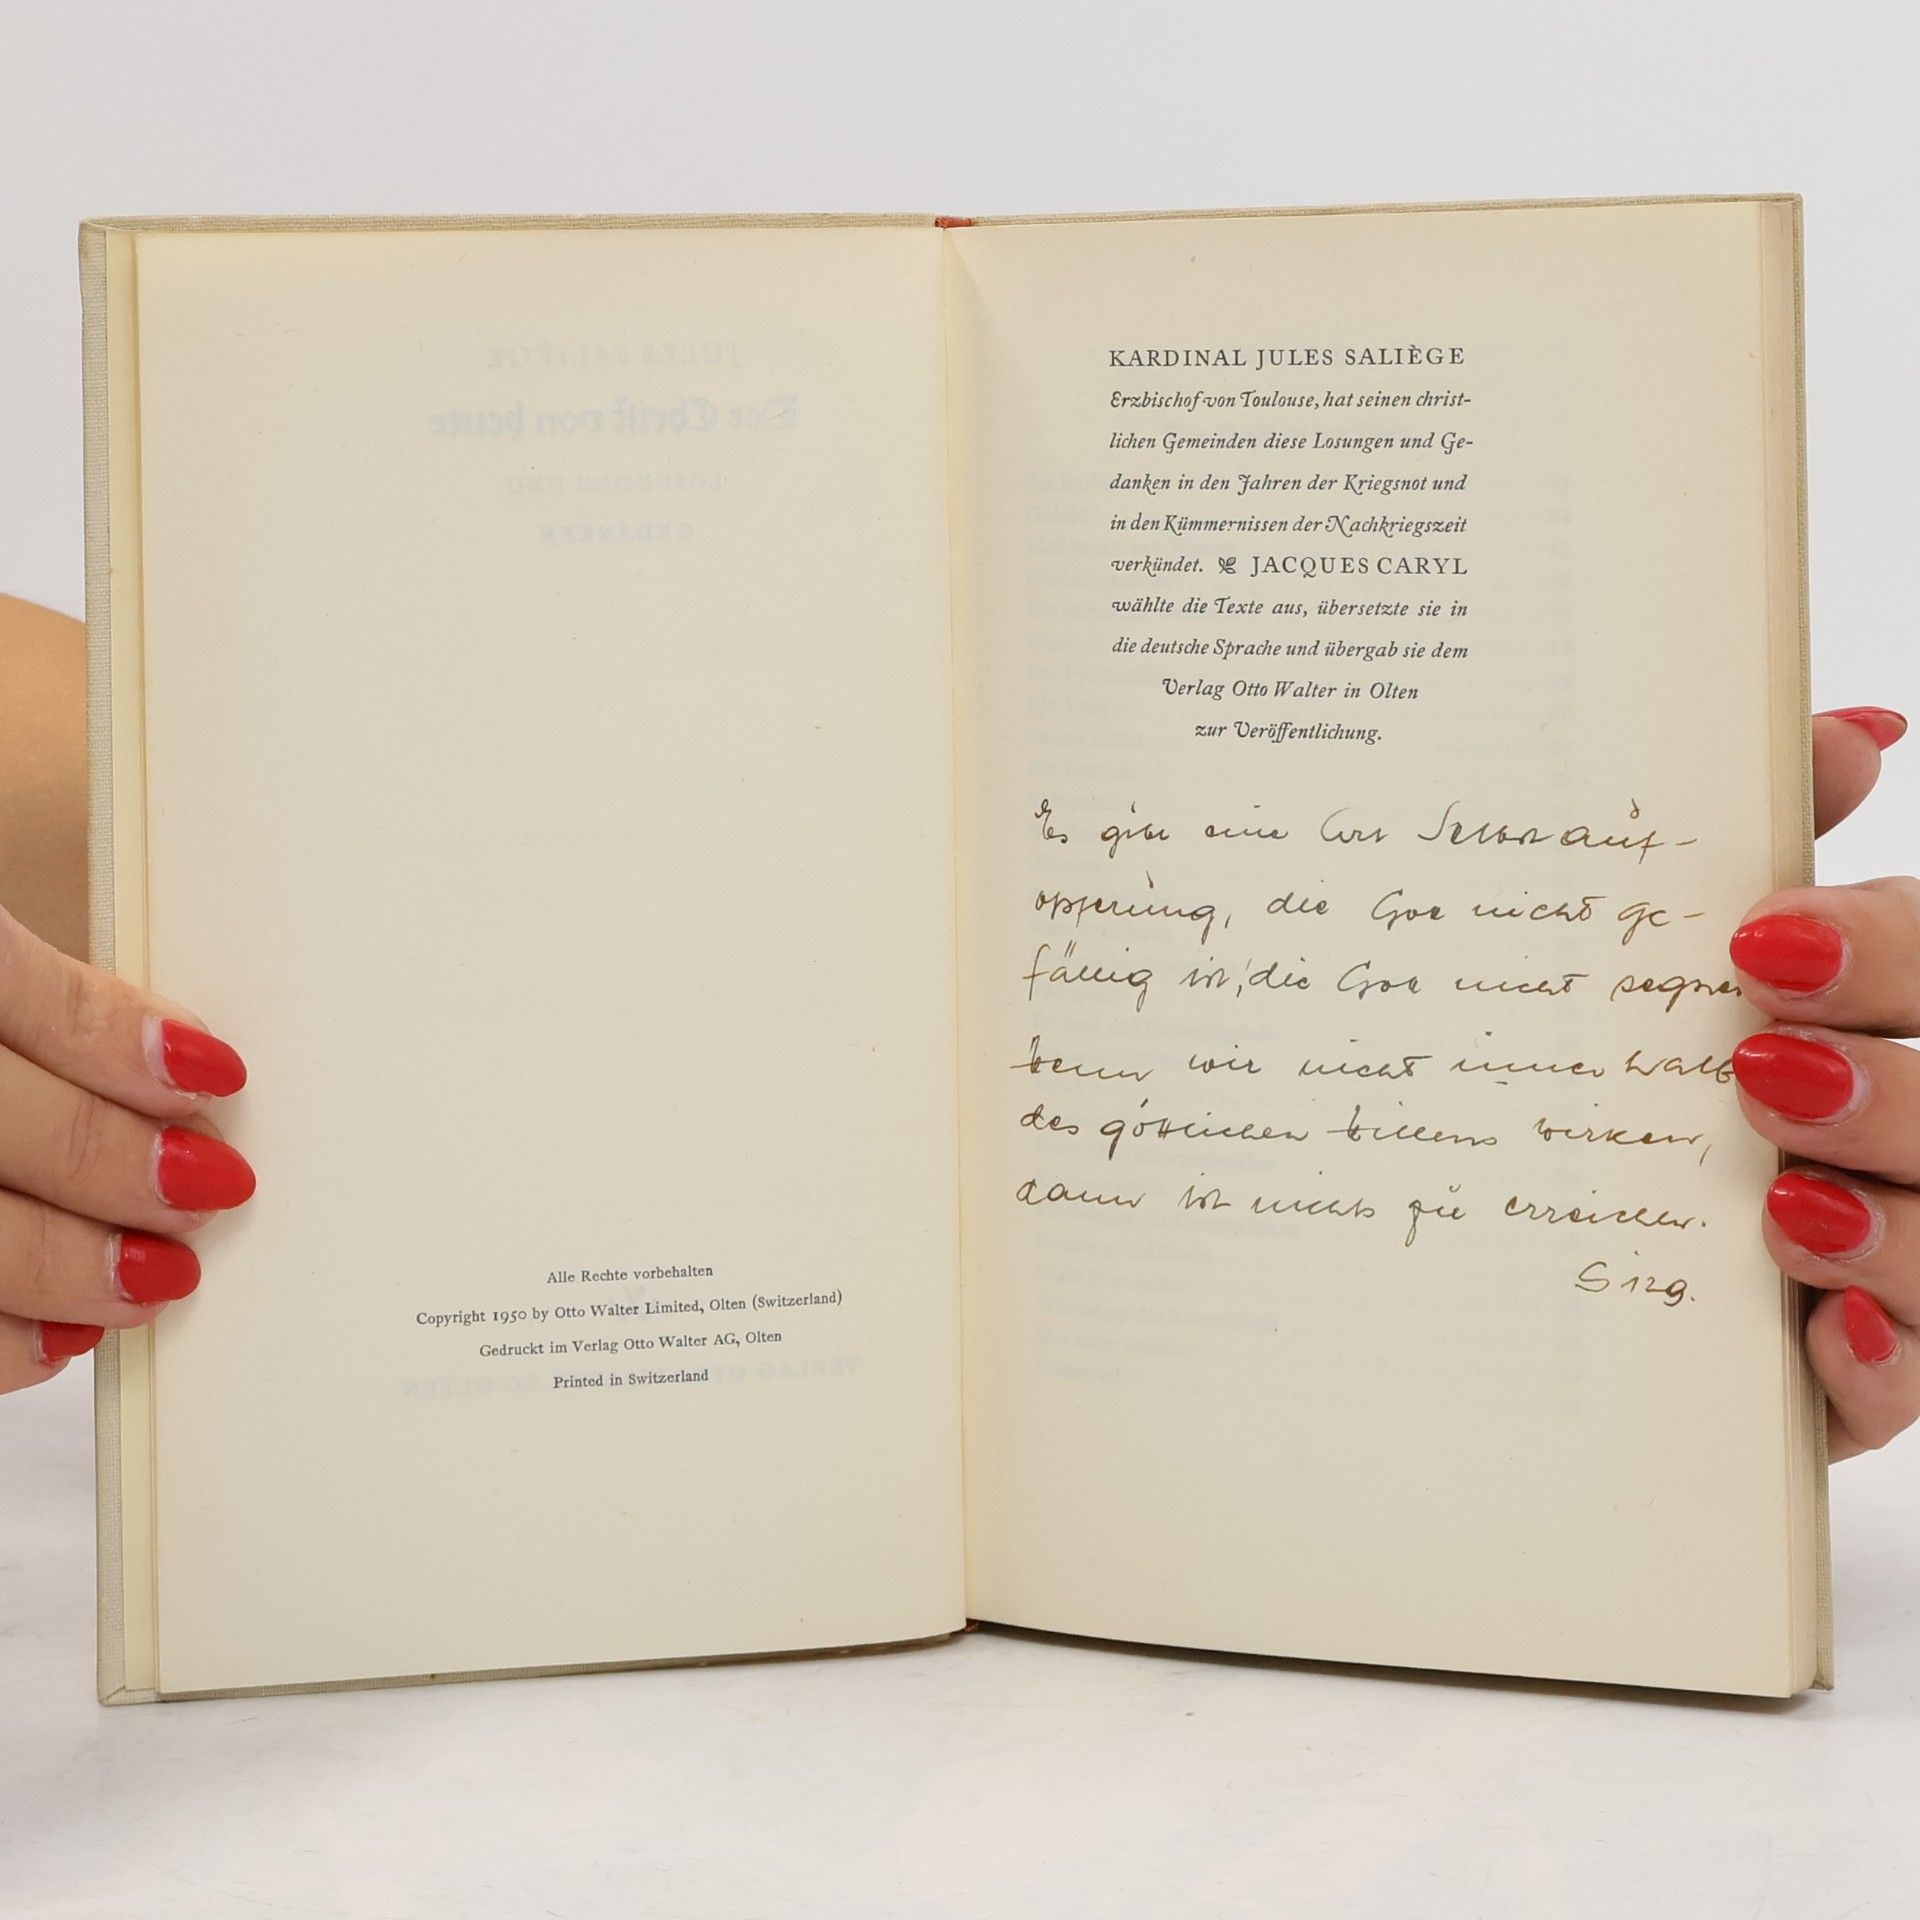 Alle Rechte vorbehalten
Copyright 1950 by Otto Walter Limited, Olten (Switzerland)
Gedruckt im Verlag Otto Walter AG, Olten
Printed in Switzerland
KARDINAL JULES SALIÈGE
Erzbischof von Toulouse, hat seinen christ-
lichen Gemeinden diese Losungen und Ge-
danken in den Jahren der Kriegsnot und
in den Kümmernissen der Nachkriegszeit
verkündet. ❧ JACQUES CARYL
wählte die Texte aus, übersetzte sie in
die deutsche Sprache und übergab sie dem
Verlag Otto Walter in Olten
zur Veröffentlichung.
Es gibt eine Art Selbstauf-
opferung, die Gott nicht ge-
fällig ist, die Gott nicht segnet
Wenn wir nicht innerhalb
des göttlichen Willens wirken,
dann ist nichts zu erreichen.